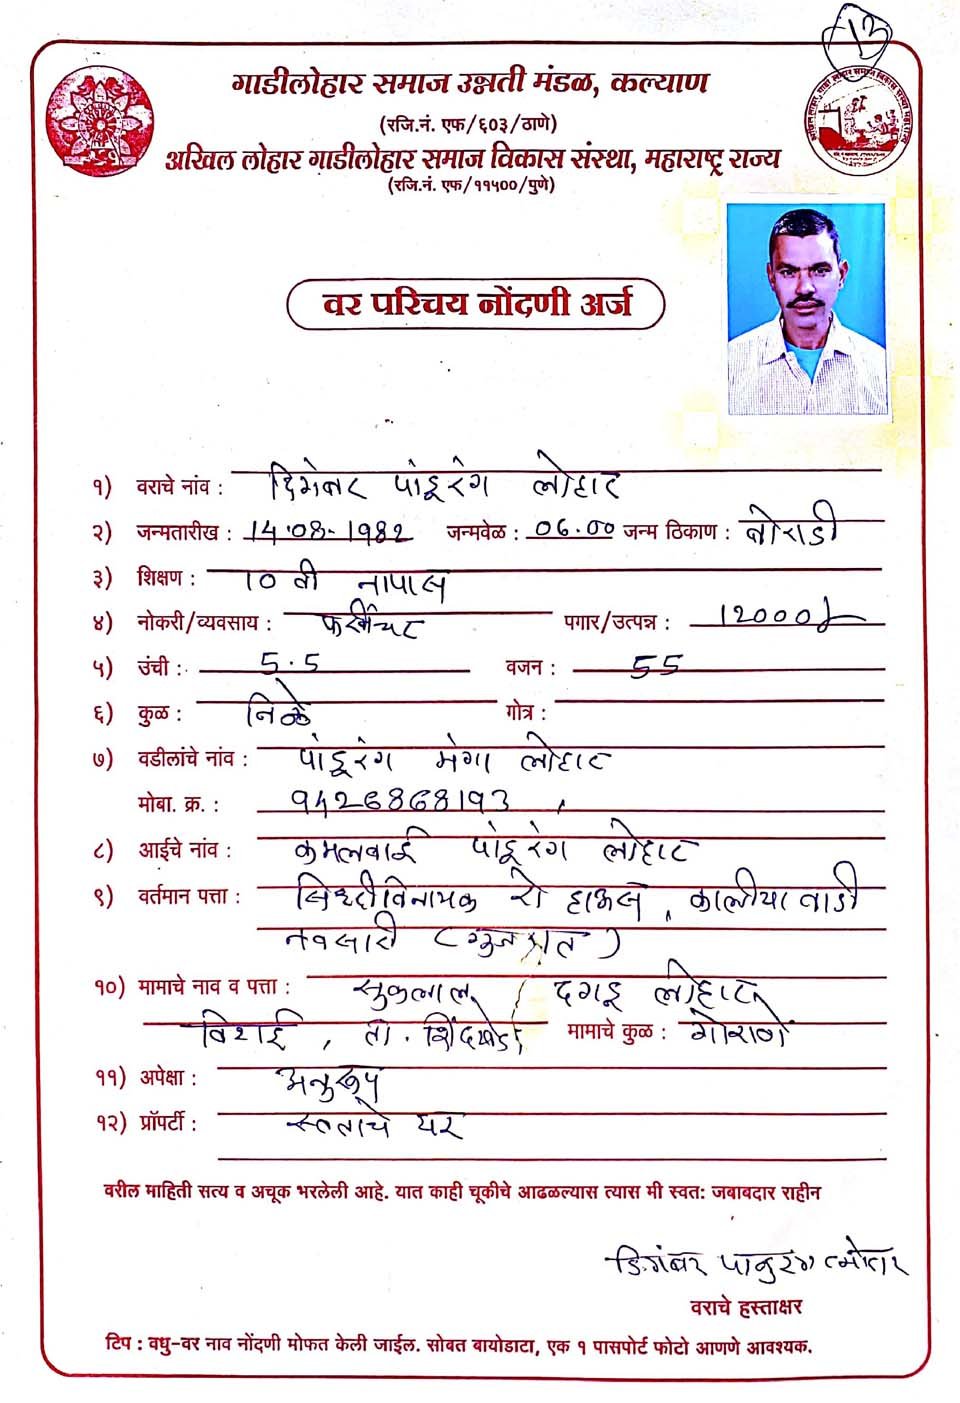 13
गाडीलोहार समाज उन्नती मंडळ, कल्याण
(रजि.नं. एफ/६०३/ठाणे)
अखिल लोहार गाडीलोहार समाज विकास संस्था, महाराष्ट्र राज्य
(रजि.नं. एफ/११५००/पुणे)
वर परिचय नोंदणी अर्ज
१) वराचे नांव : दिगंबर पांडूरंग लोहार
२) जन्मतारीख : 14.08-1982 जन्मवेळ : 06.00 जन्म ठिकाण : बोराडी
३) शिक्षण : 10 वी नापास
४) नोकरी/व्यवसाय : फर्नीचर पगार/उत्पन्न : 12000/-
५) उंची : 5.5 वजन : 55
६) कुळ : निळे गोत्र :
७) वडीलांचे नांव : पांडूरंग मंगा लोहार
मोबा. क्र. : 9426868193
८) आईचे नांव : कमलबाई पांडूरंग लोहार
९) वर्तमान पत्ता : सिध्दीविनायक रो हाऊस, कालीया वाडी
नवसारी (गुजरात)
१०) मामाचे नाव व पत्ता : सुकलाल दगडू लोहार
ता. शिंदखेडा मामाचे कुळ : गोराणे
११) अपेक्षा : अनुरूप
१२) प्रॉपर्टी : स्वताचे घर
वरील माहिती सत्य व अचूक भरलेली आहे. यात काही चूकीचे आढळल्यास त्यास मी स्वत: जबाबदार राहीन
डिगंबर पांडुरंग लोहार
वराचे हस्ताक्षर
टिप : वधु-वर नाव नोंदणी मोफत केली जाईल. सोबत बायोडाटा, एक १ पासपोर्ट फोटो आणणे आवश्यक.